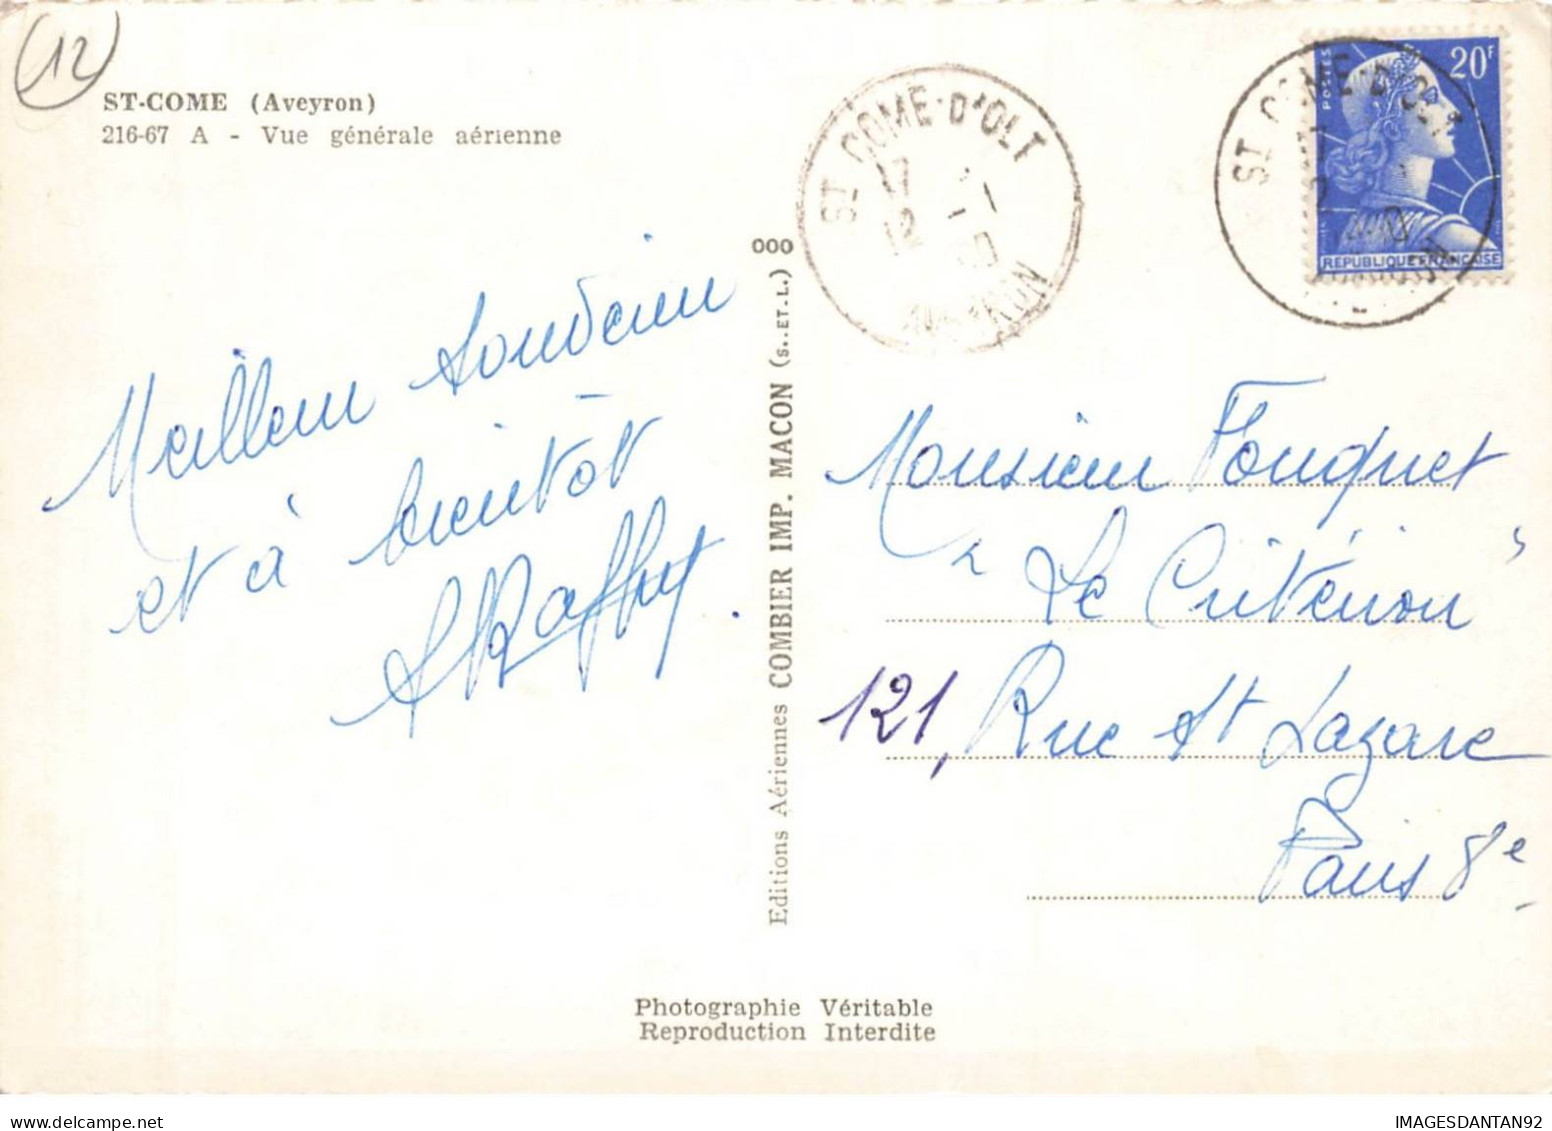 12
ST-COME (Aveyron)
216-67 A - Vue générale aérienne
ST COME-D'OLT
17
12
AVEYRON
ST COME-D'OLT
POSTES
20F
REPUBLIQUE FRANÇAISE
000
Meilleur souvenir
et à bientôt
Editions Aériennes COMBIER IMP. MACON (S.-ET-L.)
Monsieur Fouquet
"Le Critérion"
121, Rue St Lazare
Paris 8e
Photographie Véritable
Reproduction Interdite
IMAGESDANTAN92